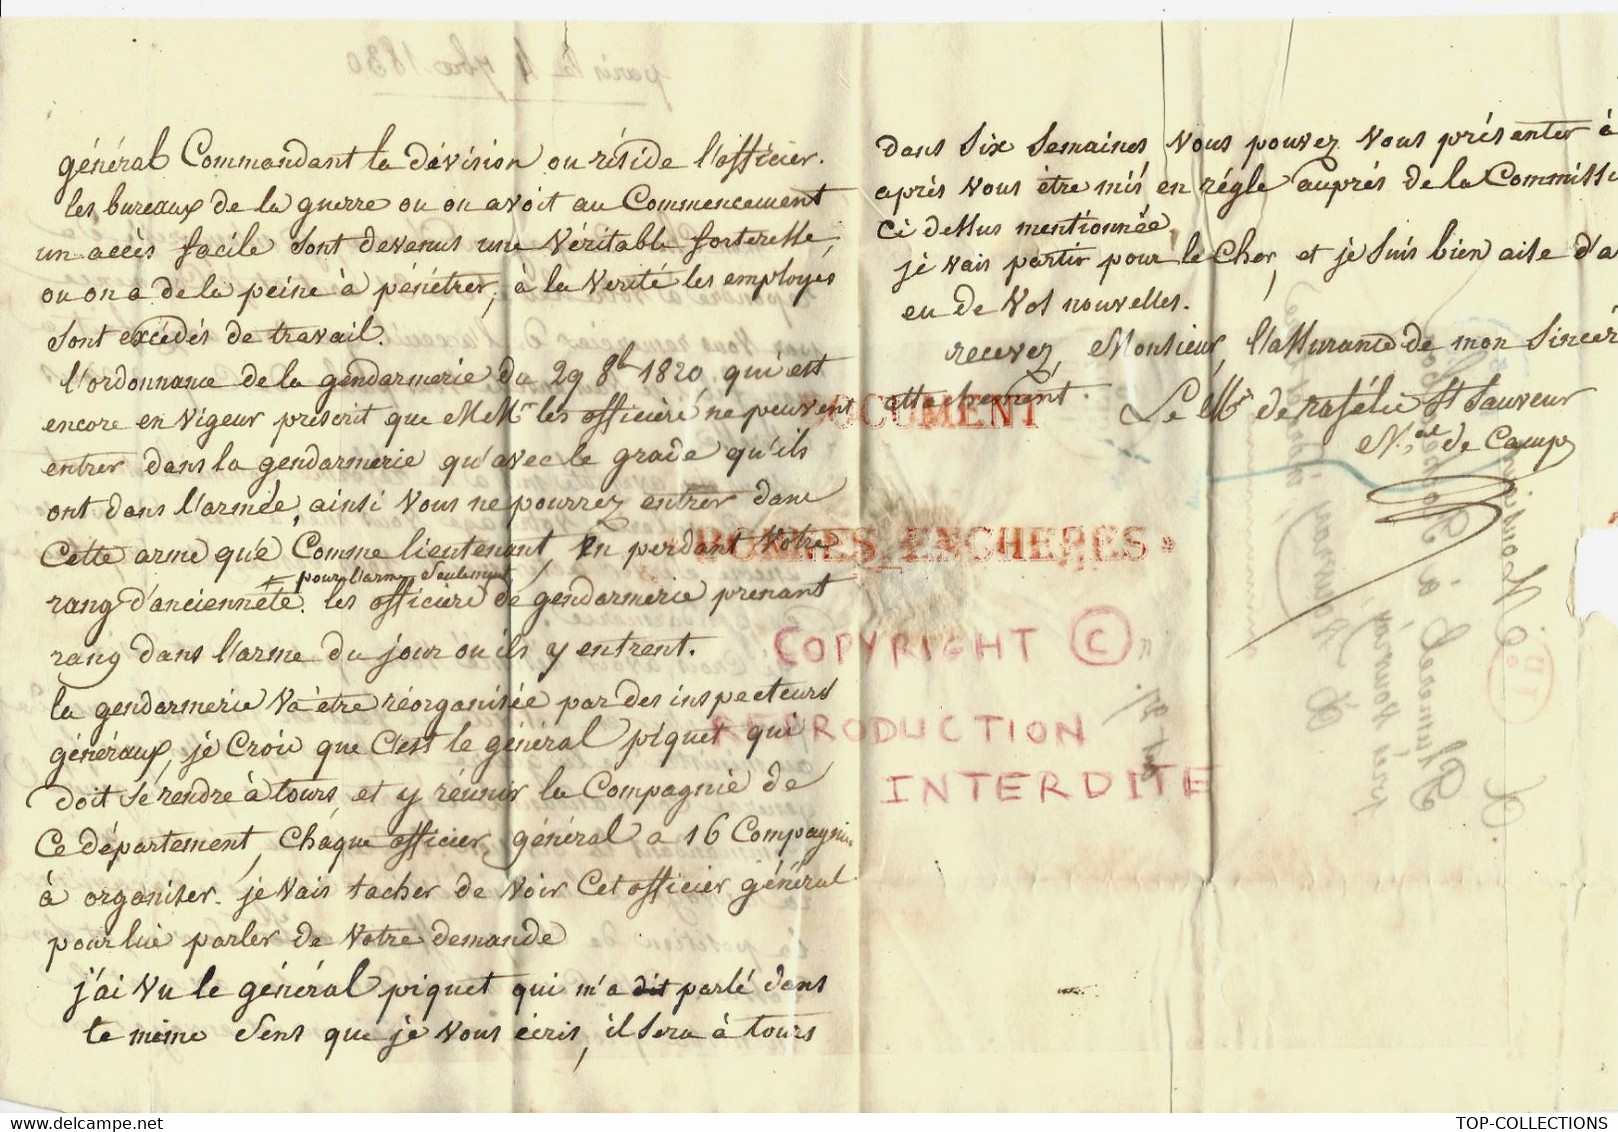 général Commandant la dévision ou réside l'officier.
les bureaux de la guerre ou on avoit au Commencement
un accès facile sont devenus une véritable forteresse,
ou on a de la peine à pénétrer, à la verité les employés
sont excédés de travail.
l'ordonnance de la gendarmerie du 29 8b 1820 qui est
encore en vigeur prescrit que MMrs les officiers ne peuvent
entrer dans la gendarmerie qu'avec le grade qu'ils
ont dans l'armée, ainsi vous ne pourrez entrer dans
cette arme qu'e Comme lieutenant, en perdant votre
+ pour l'arme seulement
rang d'ancienneté. les officiers de gendarmerie prenant
rang dans l'arme du jour où ils y entrent.
la gendarmerie va être réorganisée par des inspecteurs
généraux, je crois que c'est le général piquet qui
doit se rendre à tours, et y réunir la Compagnie de
Ce département, Cháque officier général a 16 Compagnies
à organiser. je vais tacher de voir Cet officier général
pour lui parler de votre demande
j'ai vu le général piquet qui m'a dit parlé dans
le même sens que je vous écris, il sera à tours
dans six semaines vous pouvez vous présenter à
après vous être mis en régle auprés de la Commissi
Ci dessus mentionnée.
je vais partir pour le Cher, et je suis bien aise d'a
eu de vos nouvelles.
recevez, Monsieur, l'assurance de mon sincér
attachement.
Le Mis de rafélis St Sauveur
Mal de Camp
DOCUMENT
« BONNES ENCHERES »
COPYRIGHT ©
REPRODUCTION
INTERDITE
www.delcampe.net
TOP-COLLECTIONS